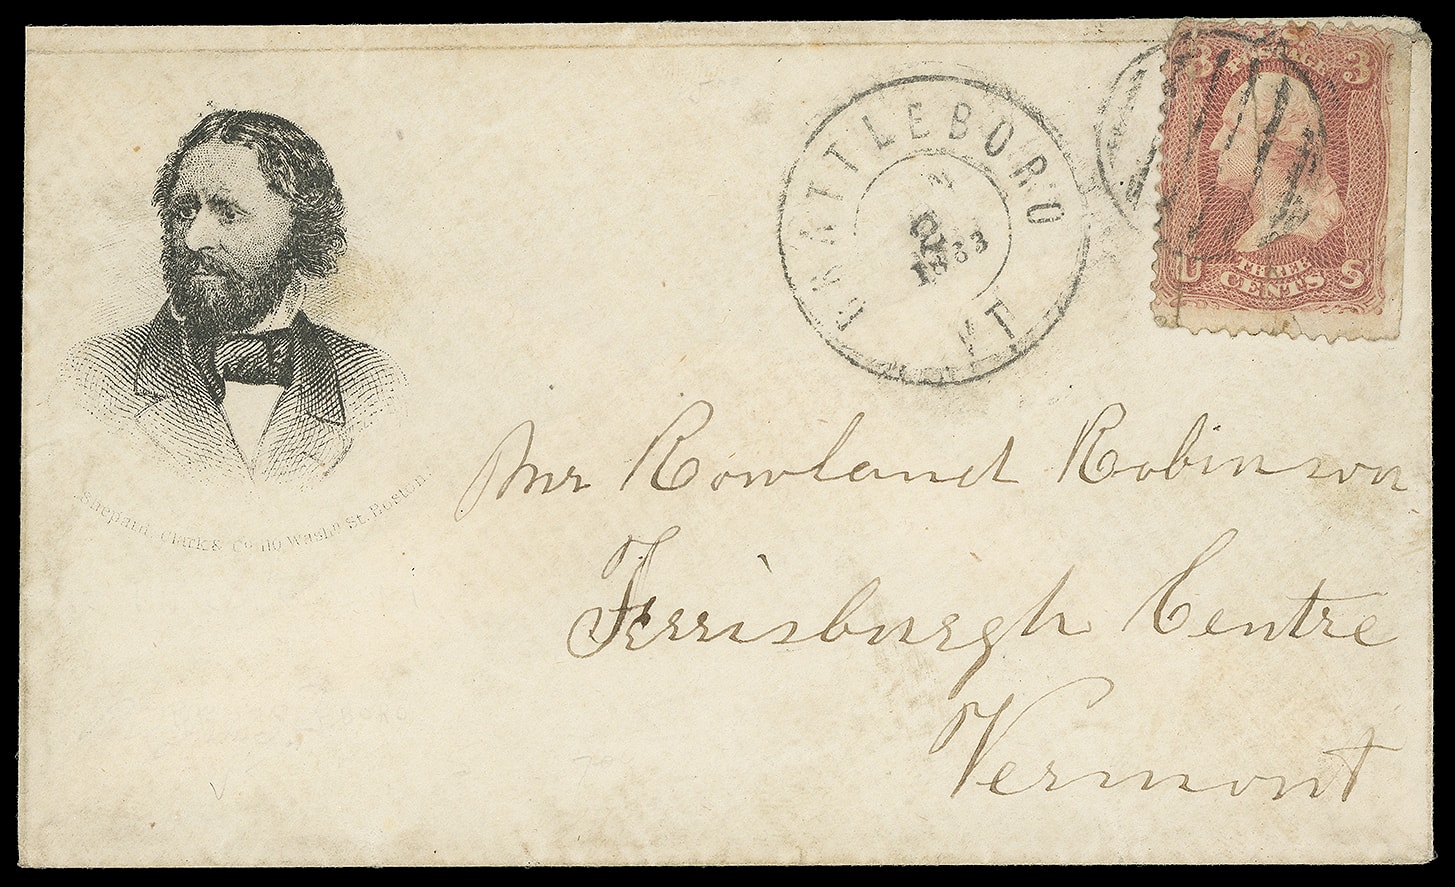 BRATTLEBORO
VT
1863
3 POSTAGE 3
U THREE S
CENTS
Shepard, Clark & Co 110 Washn St. Boston.
Mr Rowland Robinson
Ferrisburgh Centre
Vermont